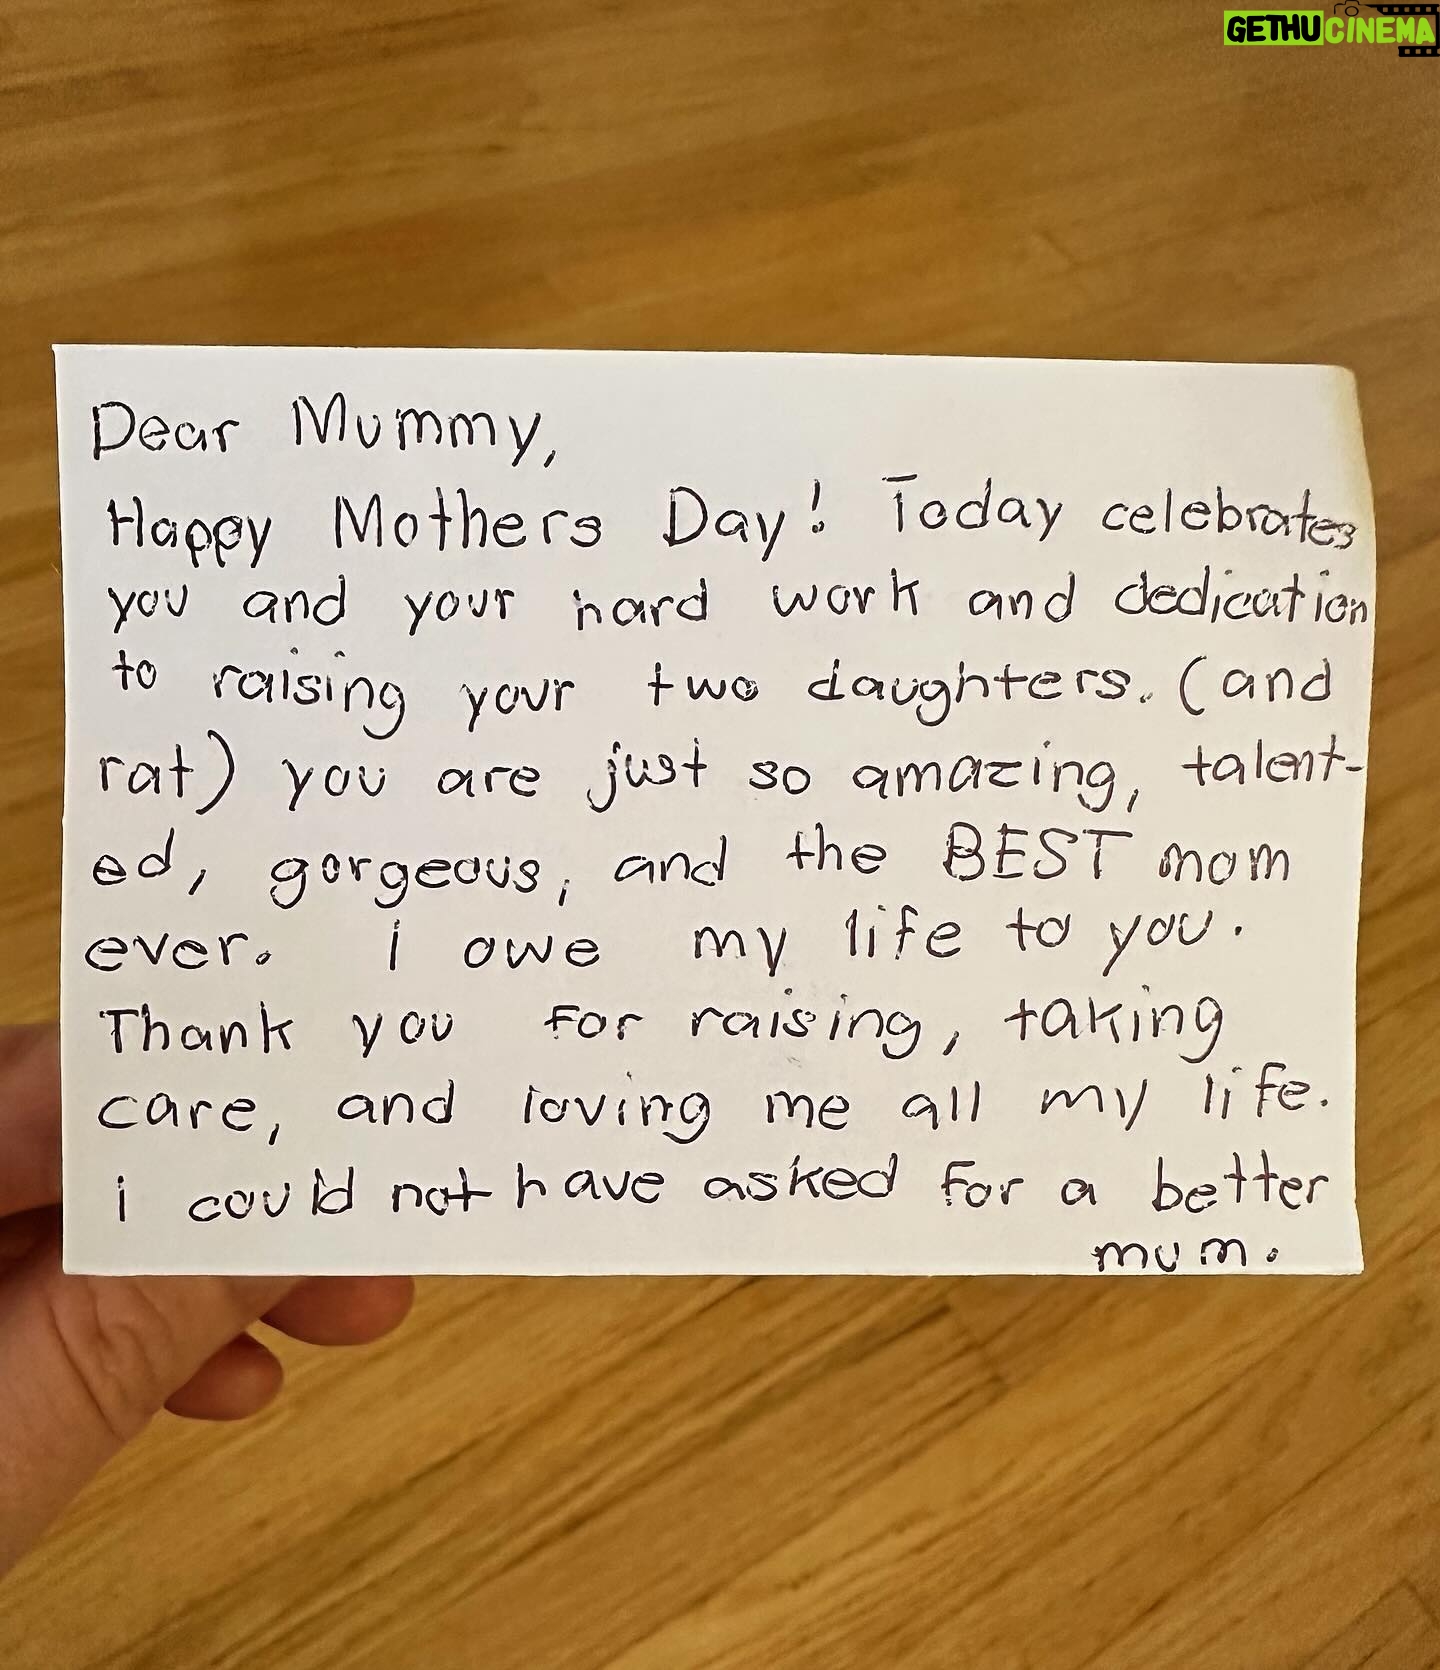 GETHUCINEMA
Dear Mummy,
Happy Mothers Day! Today celebrates
you and your hard work and dedication
to raising your two daughters. (and
rat) you are just so amazing, talent-
ed, gorgeous, and the BEST mom
ever. i owe my life to you.
Thank you for raising, taking
care, and loving me all my life.
i could not have asked for a better
mum.